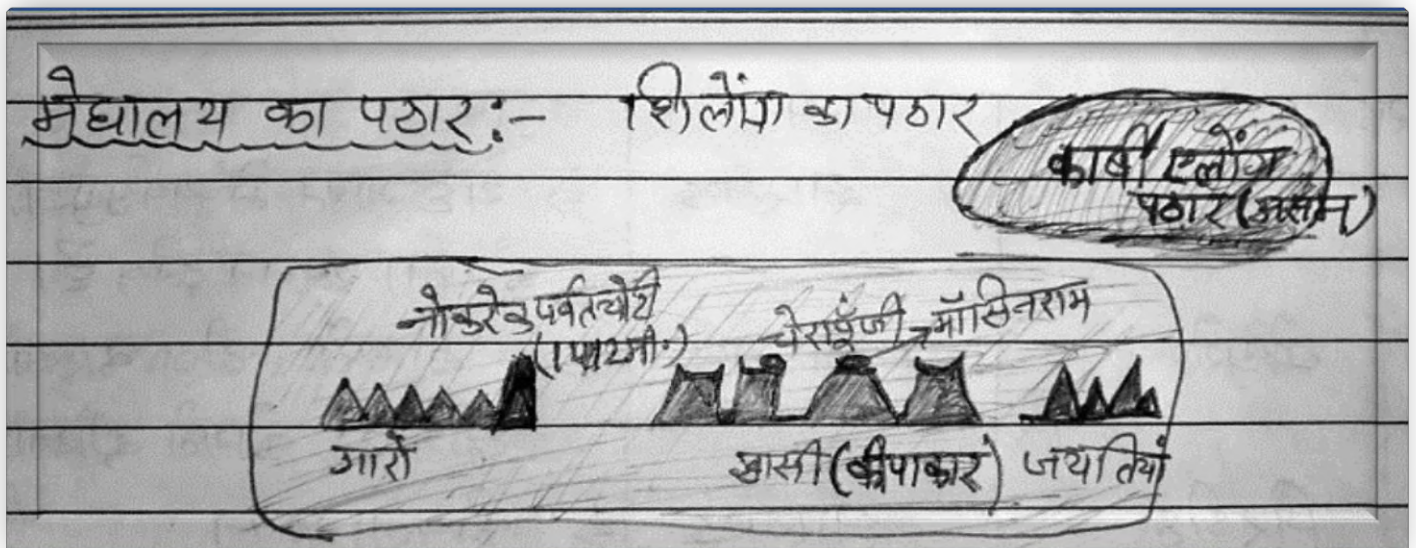 मेघालय का पठार:- शिलोंग का पठार
कार्बी एलोंग
पठार (असम)
नोकरेक पर्वत चोटी
(1412मी.)
चेरापूँजी मॉसिनराम
गारो खासी (कीपाकार) जयंतियां